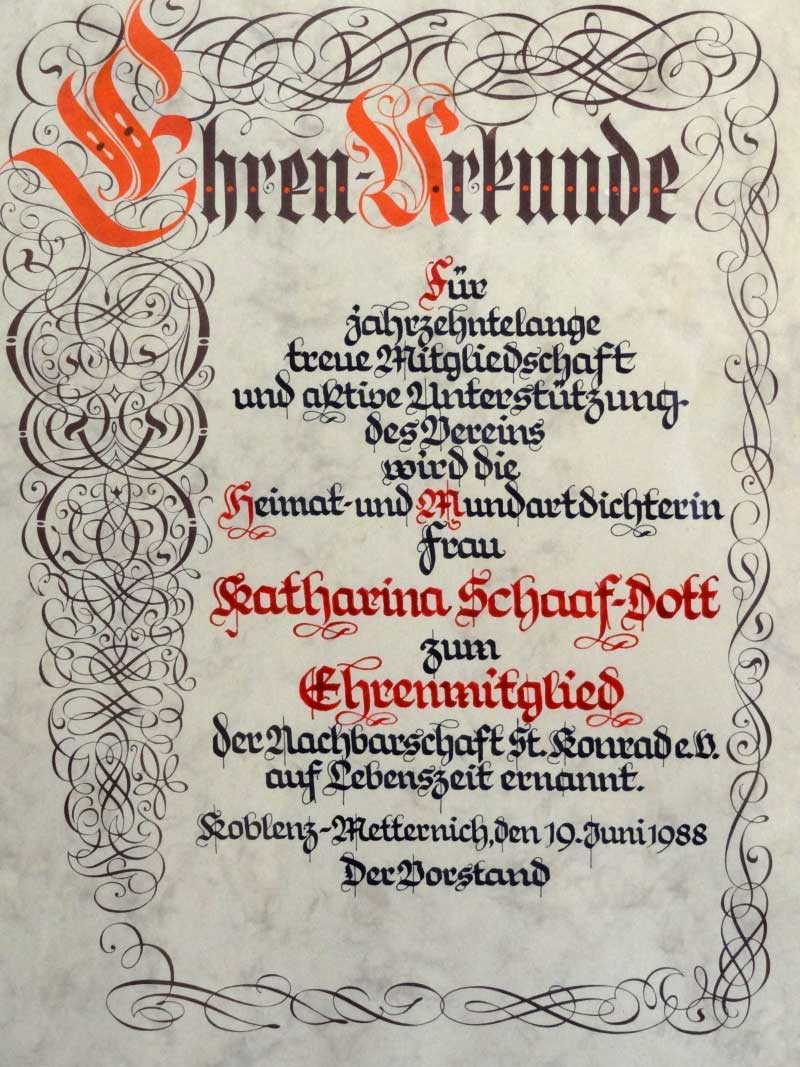 Ehren-Urkunde
Für
jahrzehntelange
treue Mitgliedschaft
und aktive Unterstützung
des Vereins
wird die
Heimat- und Mundartdichterin
Frau
Katharina Schaaf-Dott
zum
Ehrenmitglied
der Nachbarschaft St. Konrad e.V.
auf Lebenszeit ernannt.
Koblenz-Metternich, den 19. Juni 1988
Der Vorstand